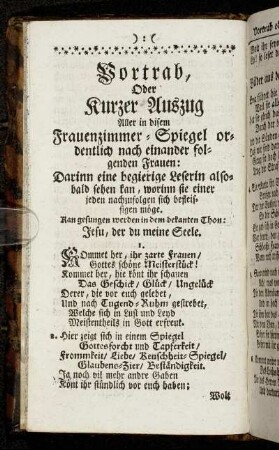 ):(
Vortrab,
Oder
Kurzer Auszug
Aller in disem
Frauenzimmer-Spiegel or-
dentlich nach einander fol-
genden Frauen:
Darinn eine begierige Leserin also-
bald sehen kan, worinn sie einer
jeden nachzufolgen sich befleis-
sigen möge.
Kan gesungen werden in dem bekanten Thon:
Jesu, der du meine Seele.
1.
Kommet her, ihr zarte Frauen/
Gottes schöne Meisterstück!
Kommet her, hie könt ihr schauen
Das Geschick/ Glück/ Unglück
Derer, die vor euch gelebet,
Und nach Tugend-Ruhm gestrebet,
Welche sich in Lust und Leyd
Meistentheils in Gott erfreut.
2. Hier zeigt sich in einem Spiegel
Gottesforcht und Tapferkeit/
Frommkeit/ Liebe/ Keuschheit-Spiegel/
Glaubens-Zier/ Beständigkeit.
Ja noch vil mehr andre Gaben
Könt ihr stündlich vor euch haben;
Wolt